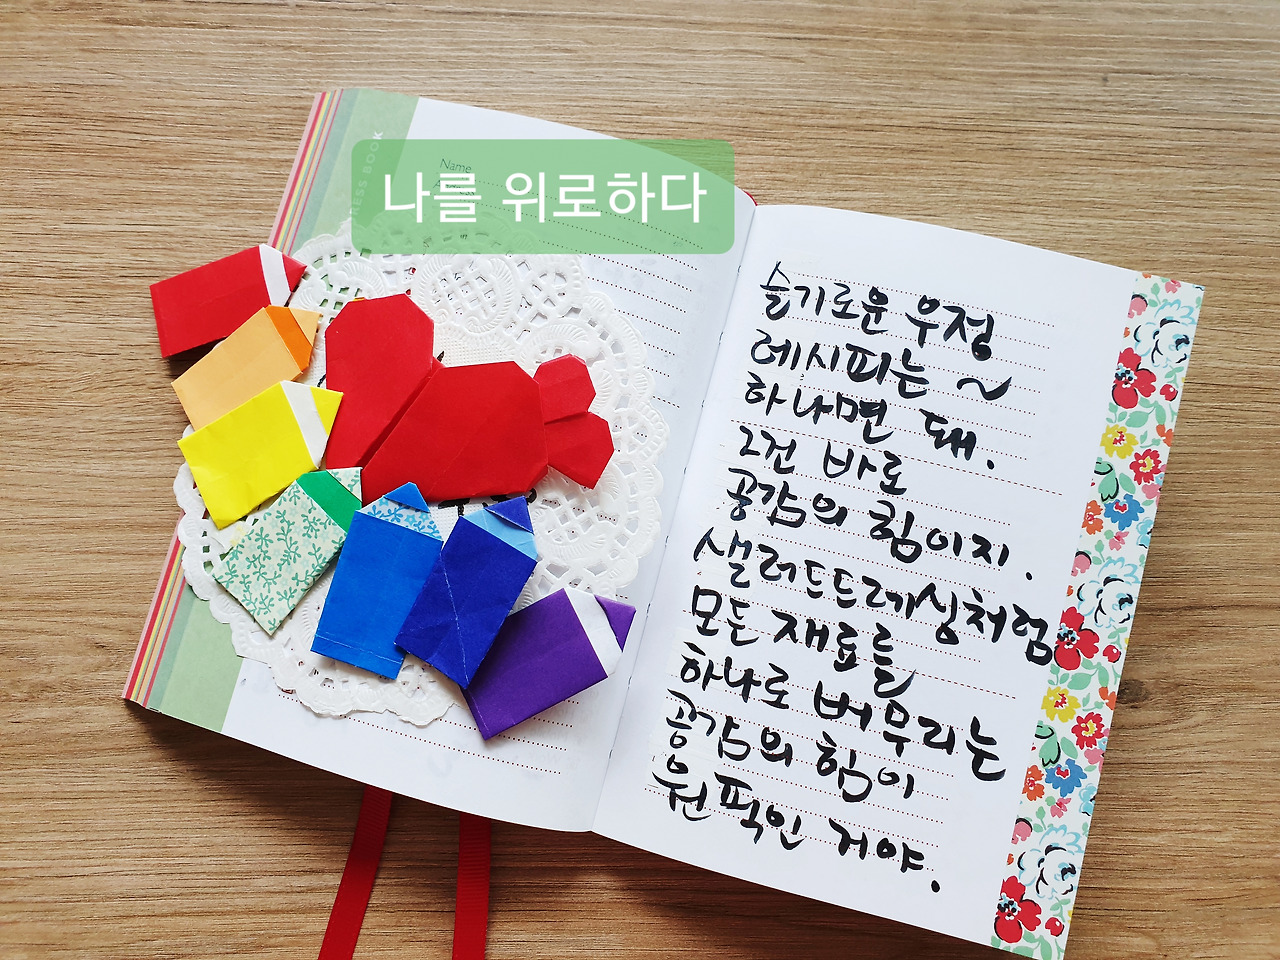 나를 위로하다
Name
RESS BOOK
슬기로운 우정
레시피는 ~
하나면 돼.
그건 바로
공감의 힘이지.
샐러드드레싱처럼
모든 재료를
하나로 버무리는
공감의 힘이
원픽인 거야.